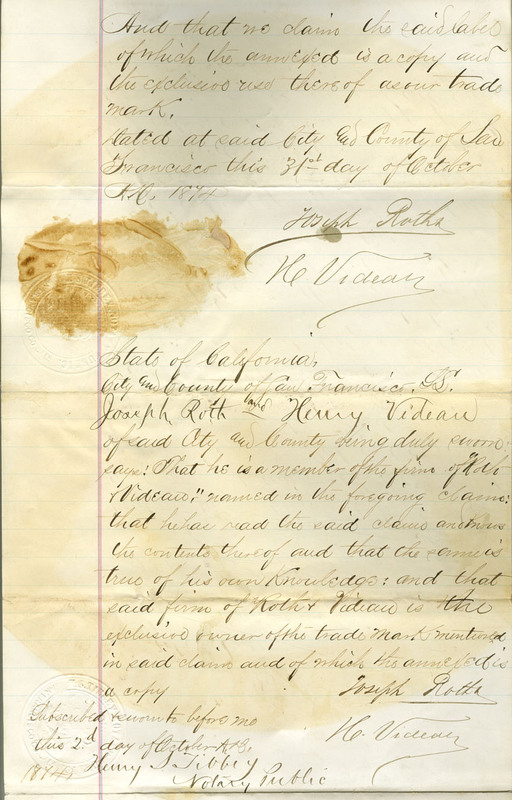 And that we claim the said label
of which the annexed is a copy and
the exclusive use thereof as our trade
mark.
Dated at said City and County of San
Francisco this 31st day of October
A.D. 1874
Joseph Roth
H Videau
State of California,
City and County of San Francisco. SS.
Joseph Roth and Henry Videau
of said City and County being duly sworn
says: That he is a member of the firm of "Roth
& Videau," named in the foregoing claim:
that he has read the said claim and knows
the contents thereof and that the same is
true of his own knowledge: and that
said firm of Roth & Videau is the
exclusive owner of the trade mark mentioned
in said claim and of which the annexed is
a copy
Joseph Roth
H. Videau
Subscribed & sworn to before me
this 2d day of October A.D.
1874
Henry S. Tibbey
Notary Public